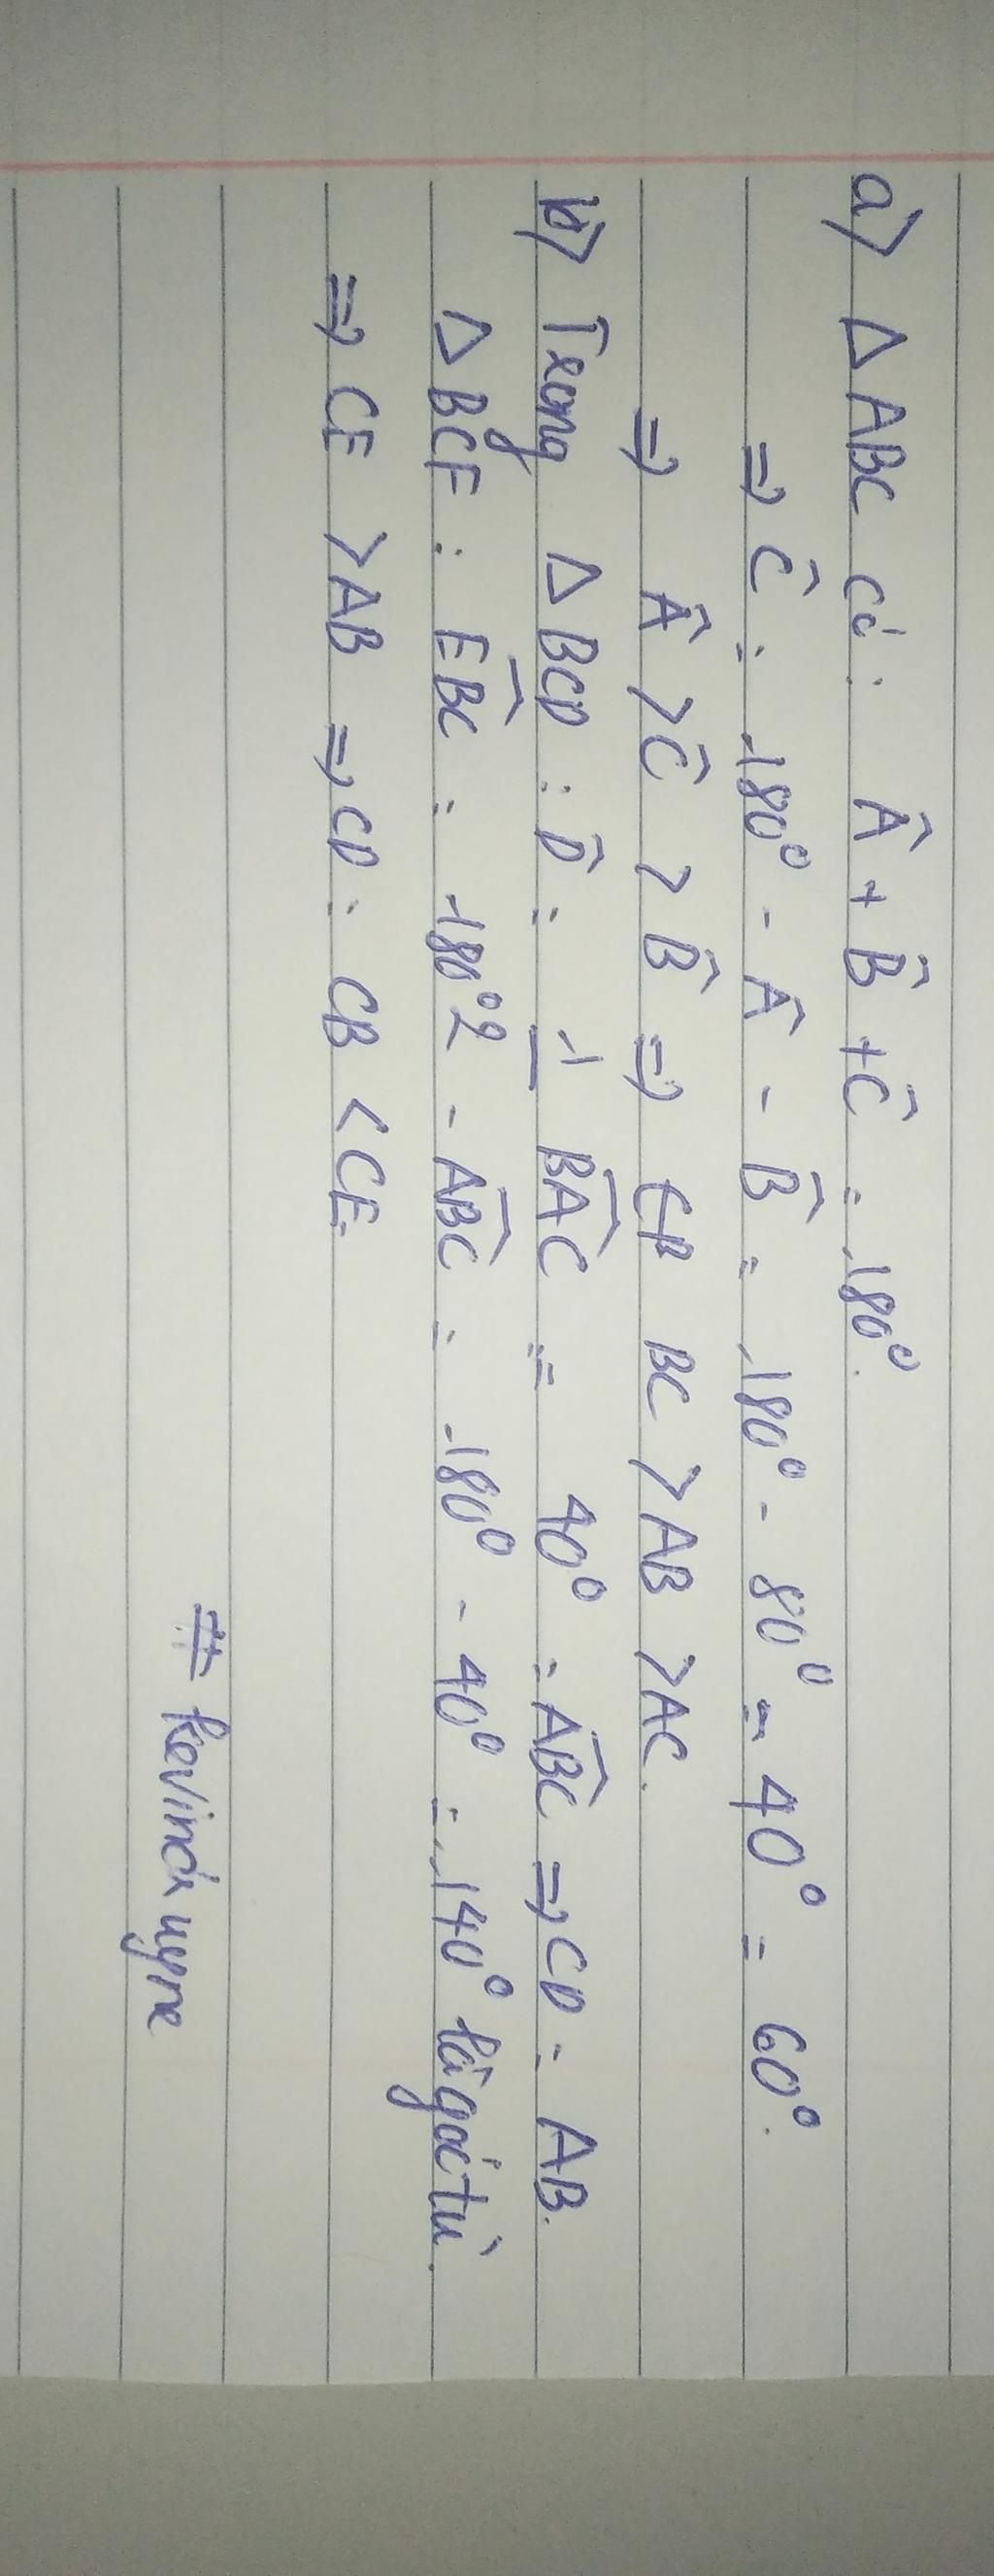 a) Δ ABC có: Â + B̂ + Ĉ = 180°.
=> Ĉ = 180° - Â - B̂ = 180° - 80° - 40° = 60°.
=> Â > Ĉ > B̂ => BC > AB > AC.
b) Trong Δ BCD: D̂ = 1/2 BAC = 40° = ABC => CD = AB.
Δ BCE: EBC = 180° - ABC = 180° - 40° = 140° là góc tù.
=> CE > AB => CD = CB < CE.